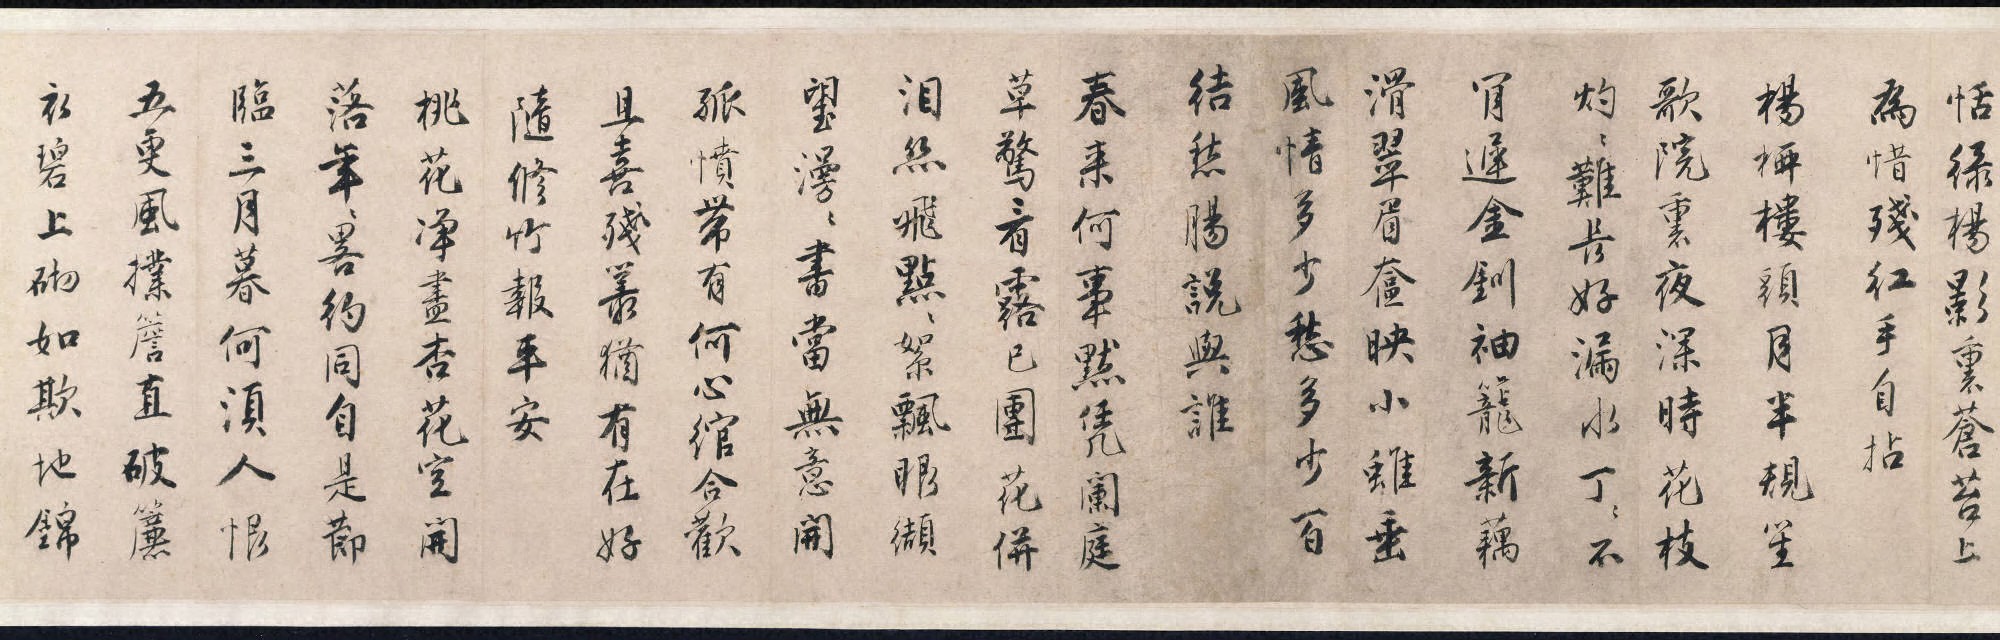 恬綠楊影裏蒼苔上
為惜殘紅手自拈
楊柳樓頭月半規笙
歌院裏夜深時花枝
灼〻難長好漏水丁〻不
肯遲金釧袖籠新藕
滑翠眉奩映小蛾垂
風情多少愁多少百
結愁腸說與誰
春来何事默凭闌庭
草驚看露已團花併
泪絲飛點〻絮飄眼纈
望漫〻書當無意開
孤憤帶有何心綰合歡
且喜殘叢猶有在好
隨修竹報平安
桃花淨盡杏花空開
落年〻畧約同自是節
臨三月暮何須人恨
五更風撲簷直破簾
衣碧上砌如欺地錦